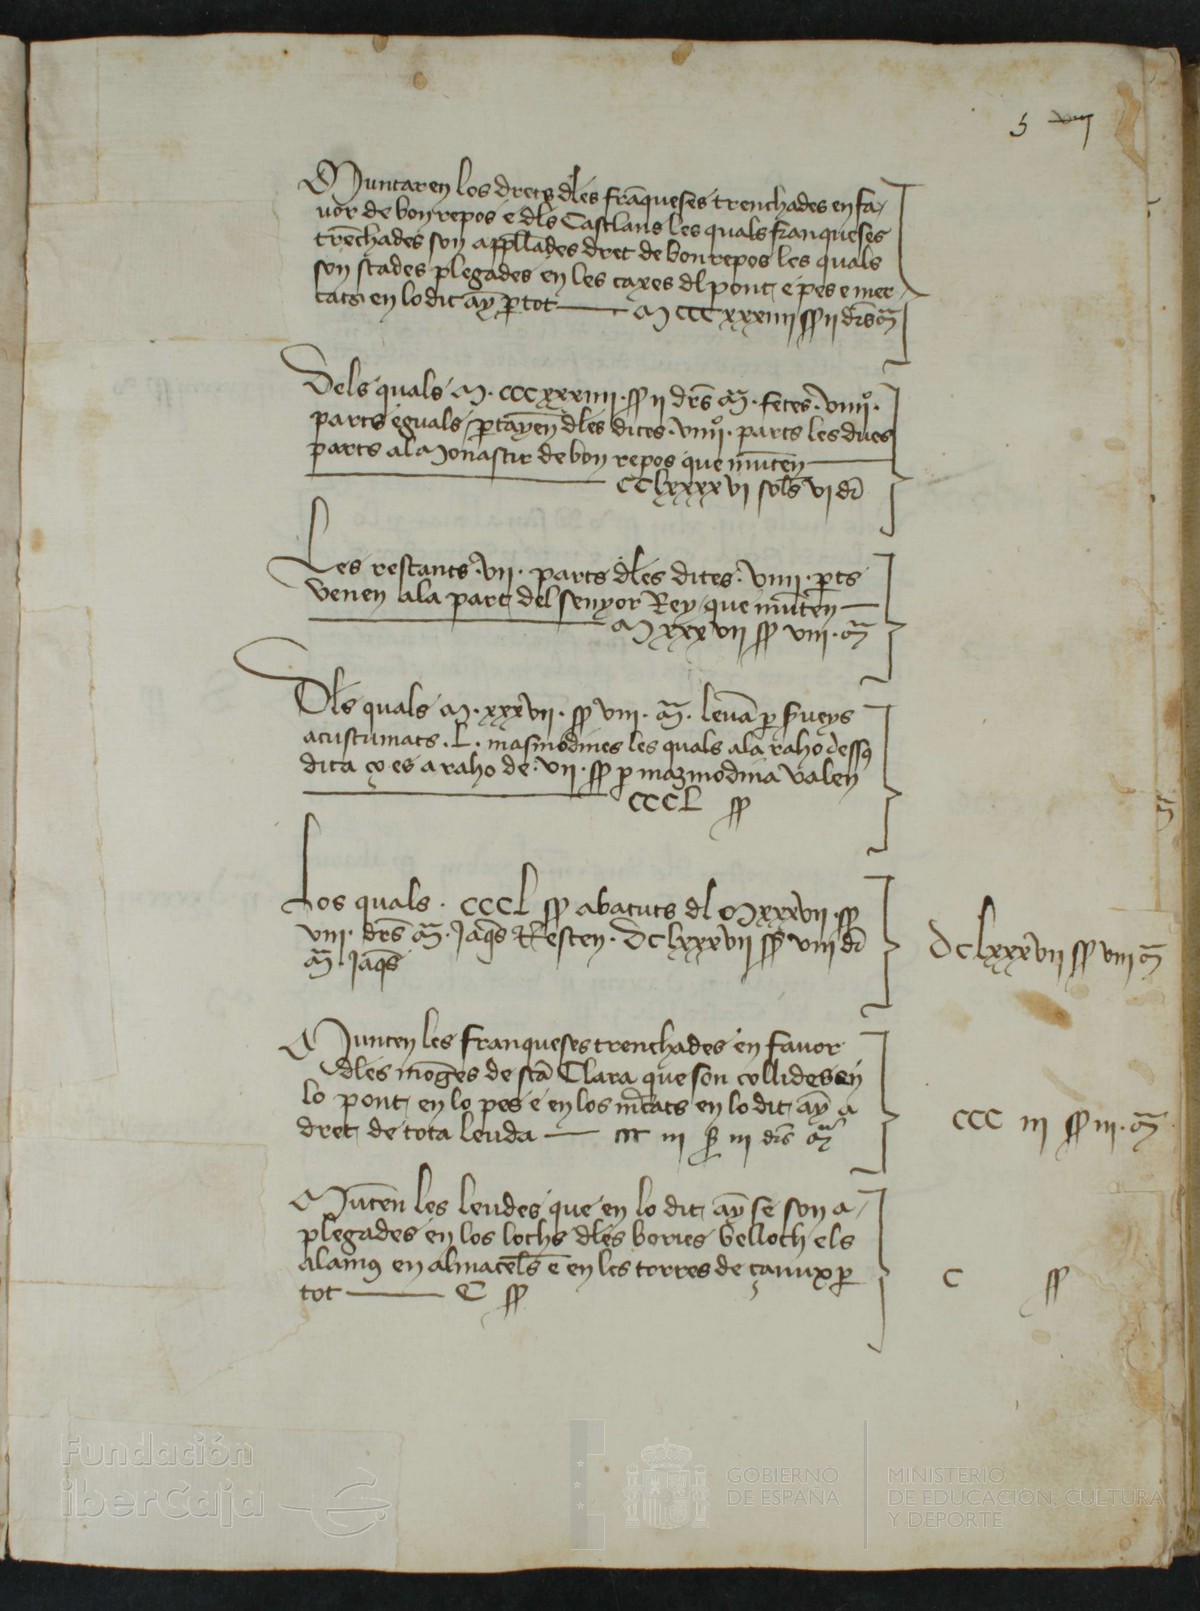 5 viiij
Muntaren los drets dles frāqueses trenchades en fa
uor de bon repos e dls Castlans les quals franqueses
trēchades son appllades dret de bon repos les quals
son stades plegades en les caxes dl pont e pes e mer
cats en lo dit ay p tot — M CCC xxxiiii ss ii drs
Dels quals M. CCC xxxiiii. ss ii drs. fetes. viiiiº.
parts eguals ptayen dles dites. viiiiº. parts les dues
parts al Monastir de bon repos que munten —
CC lxxxxvi sols vi d
Les restants. vii. parts dles dites. viiii. pts
venen ala part del senyor Rey que munten —
M xxxvii ss viii.
Dls quals M. xxxvii. ss viii. levā p
acustumats. L. masmodines les quals ala raho dessus
dita ço es a raho de. vii. ss p mazmodina valen
CCCL ss
Los quals. CCCL ss abatuts dl Mxxxvii. ss
viii. drs. Jaqs Resten. DC lxxxvii ss viii d
Jaqs
DC lxxxvii ss viii
Munten les franqueses trenchades en fauor
dles mōges de stā Clara que son collides en
lo pont en lo pes e en los mcats en lo dit ay a
dret de tota leuda — ccc iii ss iii drs
CCC iii ss iii.
Mūten les leudes que en lo dit ay se son a
plegades en los lochs dles bories belloch els
alamus en almacells e en les torres de çanuy p
tot — C ss
C ss
Fundación
iberCaja
GOBIERNO
DE ESPAÑA
MINISTERIO
DE EDUCACIÓN, CULTURA
Y DEPORTE